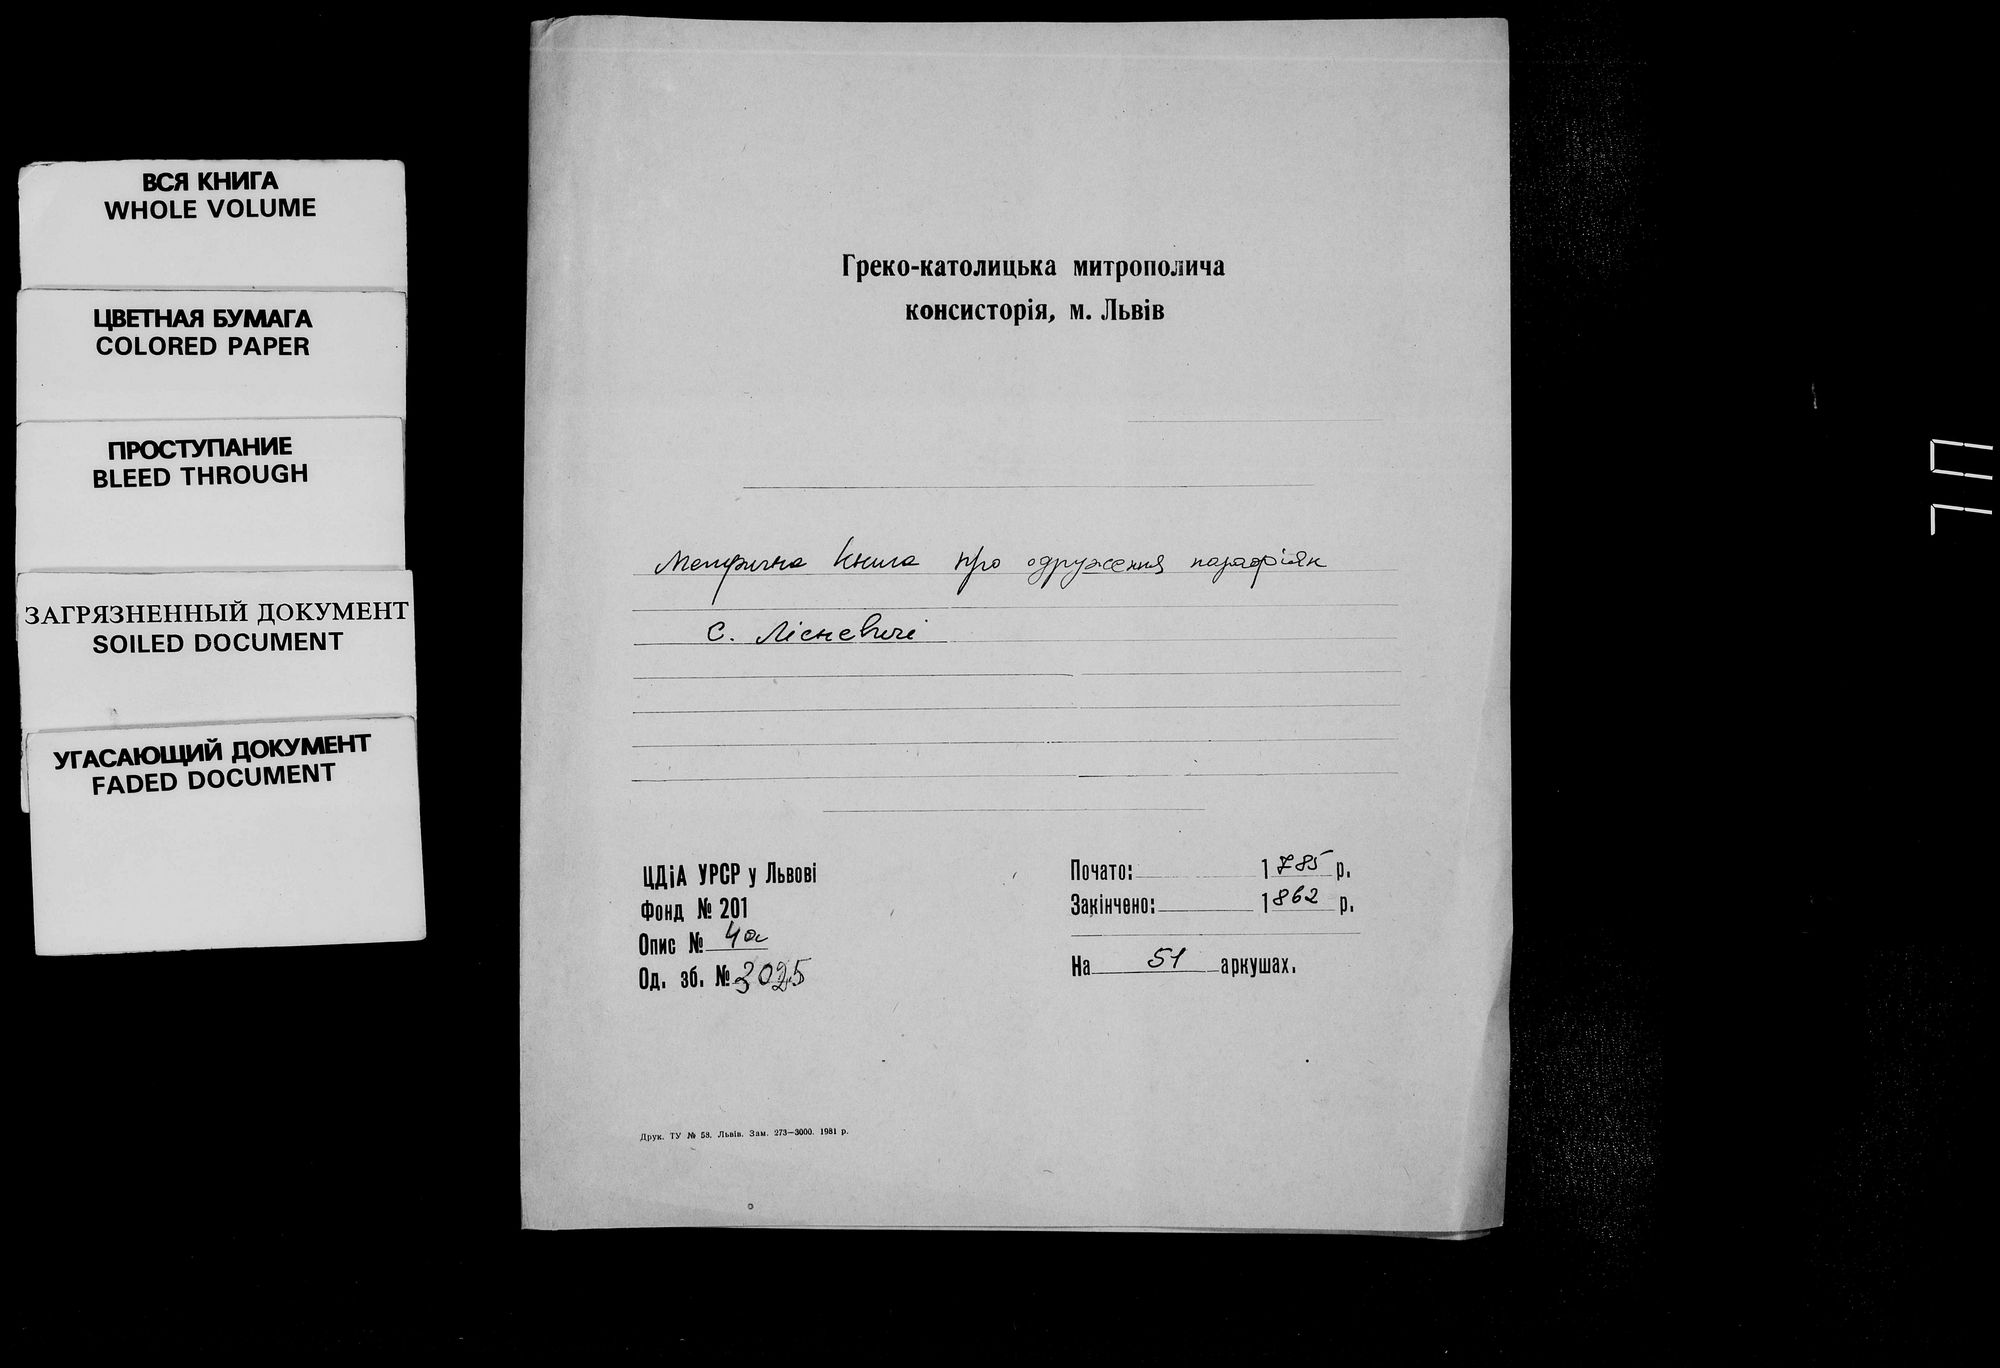 ВСЯ КНИГА
WHOLE VOLUME
ЦВЕТНАЯ БУМАГА
COLORED PAPER
ПРОСТУПАНИЕ
BLEED THROUGH
ЗАГРЯЗНЕННЫЙ ДОКУМЕНТ
SOILED DOCUMENT
УГАСАЮЩИЙ ДОКУМЕНТ
FADED DOCUMENT
Греко-католицька митрополича
консисторія, м. Львів
Метрична книга про одруження парафіян
с. Лісневичі
ЦДіА УРСР у Львові
Фонд № 201
Опис № 4а
Од. зб. № 3025
Почато: 1785 р.
Закінчено: 1862 р.
На 51 аркушах.
Друк. ТУ № 58. Львів. Зам. 273—3000. 1981 р.